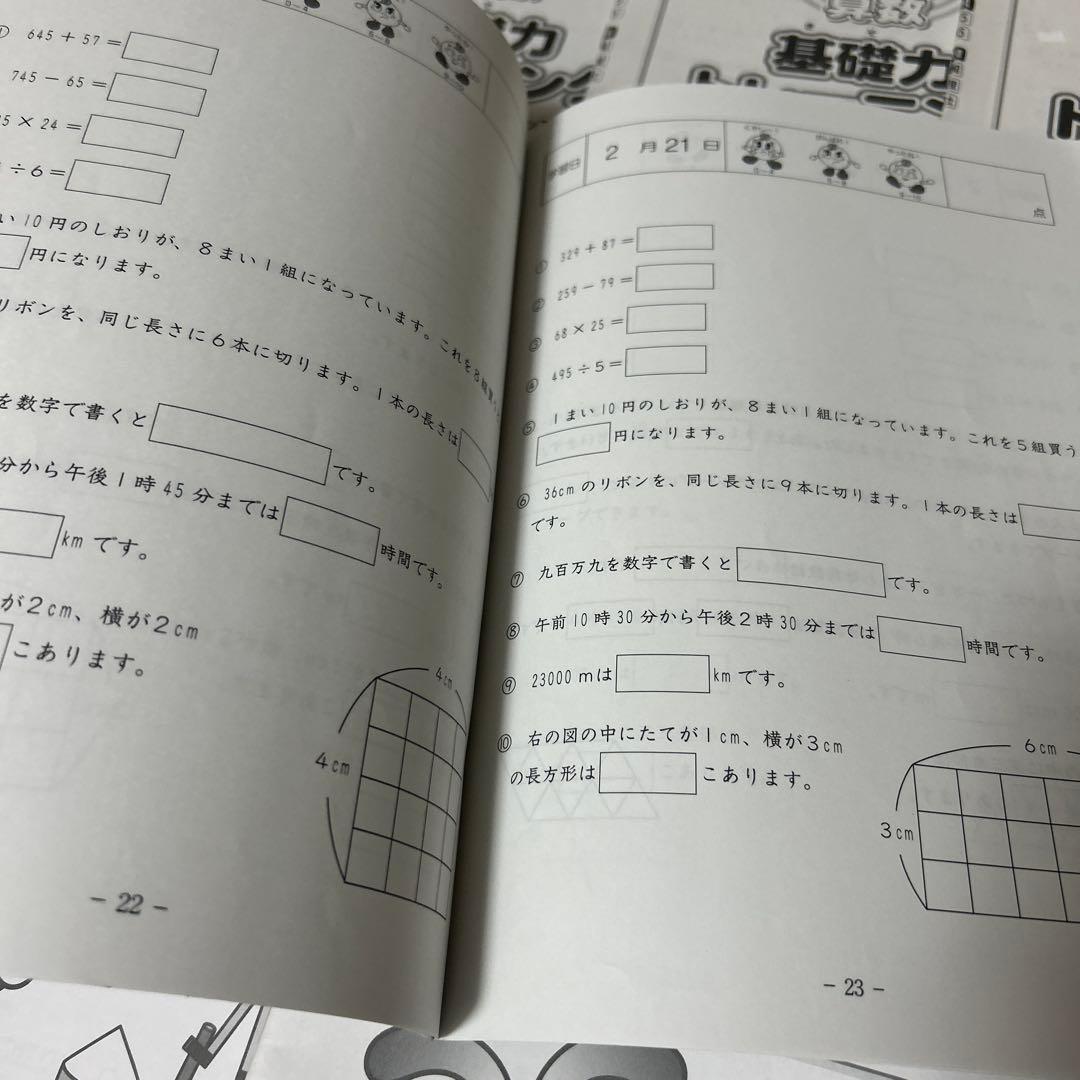 ① 645 + 57 =
745 − 65 =
5 × 24 =
÷ 6 =
い 10 円のしおりが、8 まい 1 組になっています。これを 8 組買う
円になります。
リボンを、同じ長さに 6 本に切ります。1 本の長さは
を数字で書くと
です。
分から午後 1 時 45 分までは
時間です。
km です。
が 2 cm、横が 2 cm
こあります。
4 cm
4 cm
− 22 −
算数
基礎力
学習日
2 月 21 日
点
① 329 + 87 =
② 259 − 79 =
③ 68 × 25 =
④ 495 ÷ 5 =
⑤ 1 まい 10 円のしおりが、8 まい 1 組になっています。これを 5 組買う
円になります。
⑥ 36cm のリボンを、同じ長さに 9 本に切ります。1 本の長さは
です。
⑦ 九百万九を数字で書くと
です。
⑧ 午前 10 時 30 分から午後 2 時 30 分までは
時間です。
⑨ 23000 m は
km です。
⑩ 右の図の中にたてが 1 cm、横が 3 cm
の長方形は
こあります。
6 cm
3 cm
− 23 −